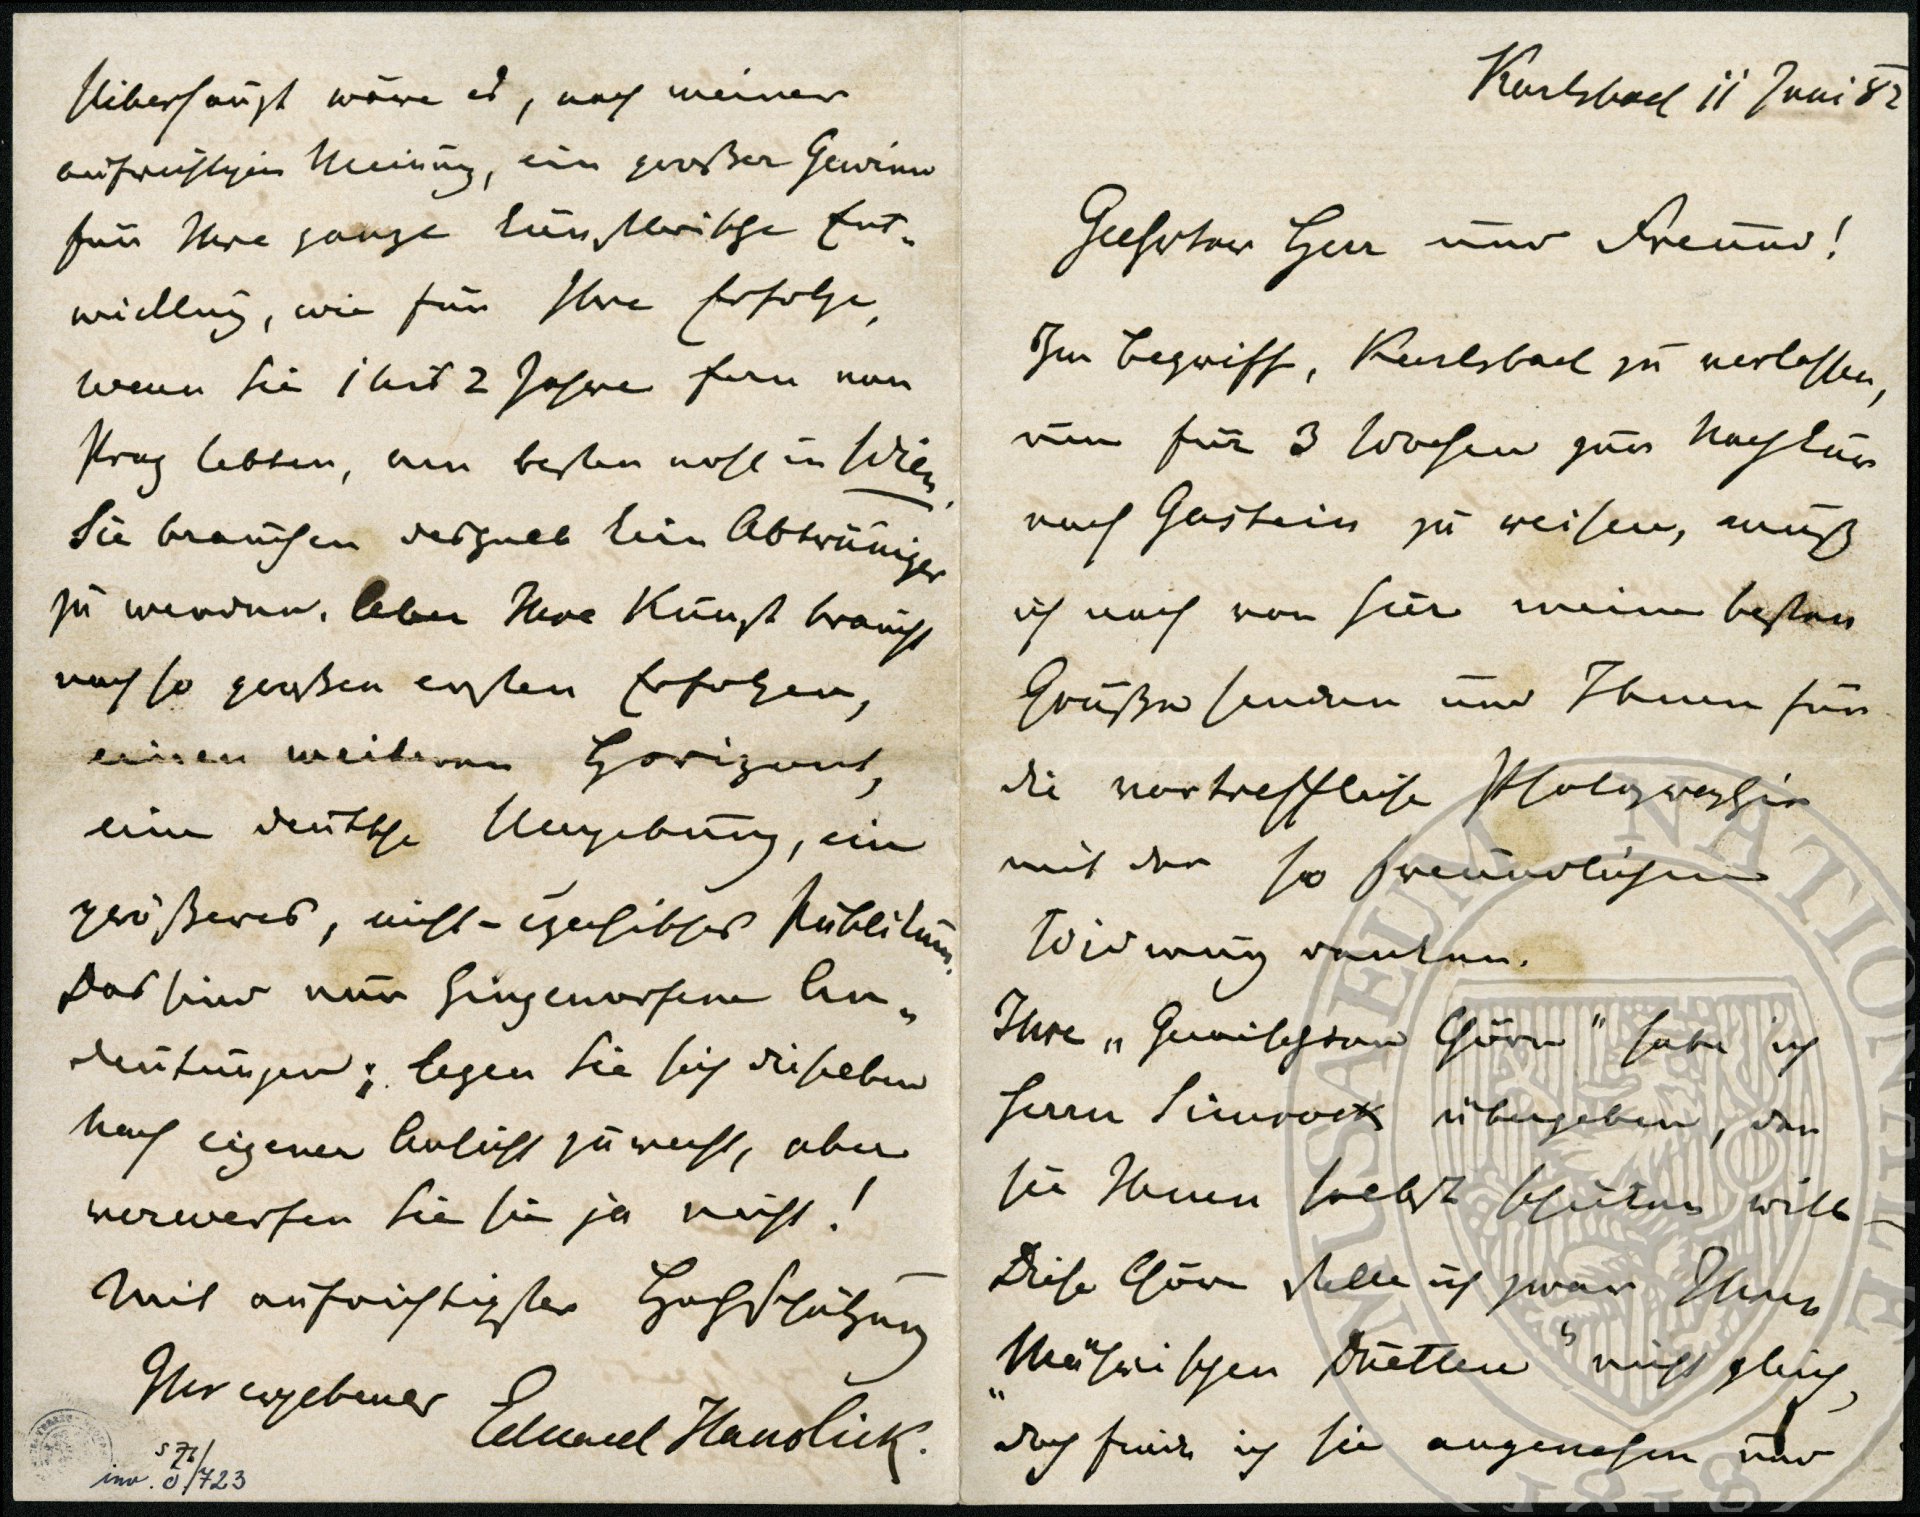 Karlsbad 11 Juni 82
Geehrter Herr und Freund!
Im Begriff, Karlsbad zu verlassen,
um für 3 Wochen zur Nachkur
nach Gastein zu reisen, muß
ich noch von hier meine besten
Grüße senden und Ihnen für
die vortreffliche Photographie
mit der so freundlichen
Widmung danken.
Ihre „Gemischten Chöre" habe ich
Herrn Simrock übergeben, der
sie Ihnen selbst schicken will –
Diese Chöre stelle ich zwar Ihren
„Mährischen Duetten" nicht gleich,
doch finde ich sie angenehm und
Ueberhaupt wäre es, nach meiner
aufrichtigen Meinung, ein großer Gewinn
für Ihre ganze künstlerische Ent-
wicklung, wie für Ihre Erfolge,
wenn Sie 1 bis 2 Jahre fern von
Prag lebten, am besten wohl in Wien.
Sie brauchen deshalb kein Abtrünniger
zu werden. Aber Ihre Kunst braucht
nach so großen ersten Erfolgen,
einen weiteren Horizont,
eine deutsche Umgebung, ein
größeres, nicht-czechisches Publikum.
Das sind nur hingeworfene An-
deutungen; legen Sie sich dieselben
nach eigener Ansicht zurecht, aber
verwerfen Sie sie ja nicht!
Mit aufrichtigster Hochschätzung
Ihr ergebener
Eduard Hanslick.
S 76/
inv. č/723
MUSAEUM NATIONALE
1818